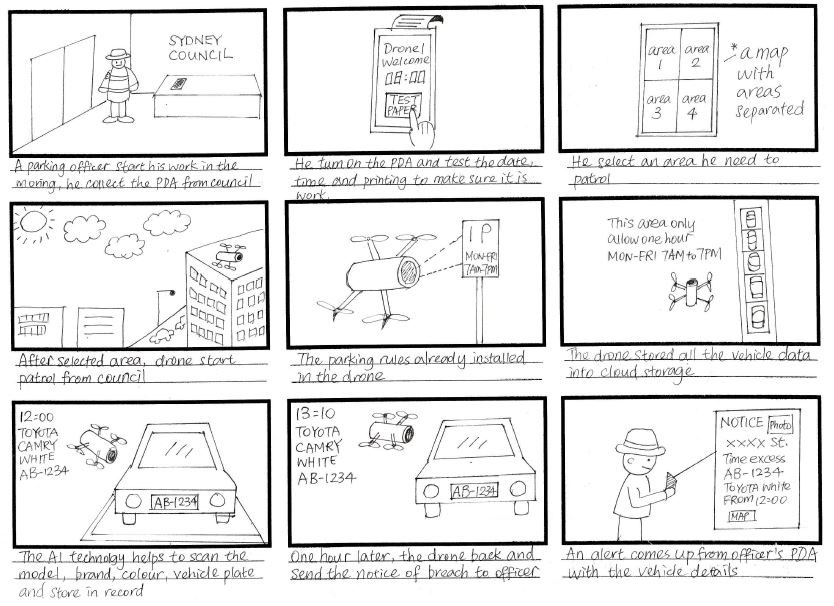 SYDNEY
COUNCIL
A parking officer start his work in the
moring, he collect the PDA from council
Drone1
Welcome
08:00
TEST
PAPER
He turn on the PDA and test the date,
time and printing to make sure it is
work.
area
1
area
2
area
3
area
4
* a map
with
areas
separated
He select an area he need to
patrol
After selected area, drone start
patrol from council
1P
MON-FRI
7AM-7PM
The parking rules already installed
in the drone
This area only
allow one hour
MON-FRI 7AM to 7PM
The drone stored all the vehicle data
into cloud storage
12:00
TOYOTA
CAMRY
WHITE
AB-1234
AB-1234
The AI technolgy helps to scan the
model, brand, colour, vehicle plate
and store in record
13:10
TOYOTA
CAMRY
WHITE
AB-1234
AB-1234
One hour later, the drone back and
send the notice of breach to officer
NOTICE
Photo
XXXX St.
Time excess
AB-1234
TOYOTA White
FROM 12:00
MAP
An alert comes up from officer's PDA
with the vehicle details